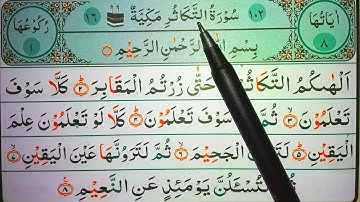 اٰیَاتُهَا ٨
١٠٢ سُوْرَةُ التَّكَاثُرِ مَكِّيَّةٌ ١٦
رُكُوْعُهَا ١
بِسْمِ الرَّحْمٰنِ الرَّحِیْمِ
اَلْهٰىكُمُ التَّكَاثُرُ حَتّٰى زُرْتُمُ الْمَقَابِرَ ٢ كَلَّا سَوْفَ
تَعْلَمُوْنَ ٣ ثُمَّ سَوْفَ تَعْلَمُوْنَ ٤ كَلَّا لَوْ تَعْلَمُوْنَ عِلْمَ
الْیَقِیْنِ ٥ لَتَرَوُنَّ الْجَحِیْمَ ٦ ثُمَّ لَتَرَوُنَّهَا عَیْنَ الْیَقِیْنِ ٧
ثُمَّ لَتُسْئَلُنَّ یَوْمَئِذٍ عَنِ النَّعِیْمِ ٨